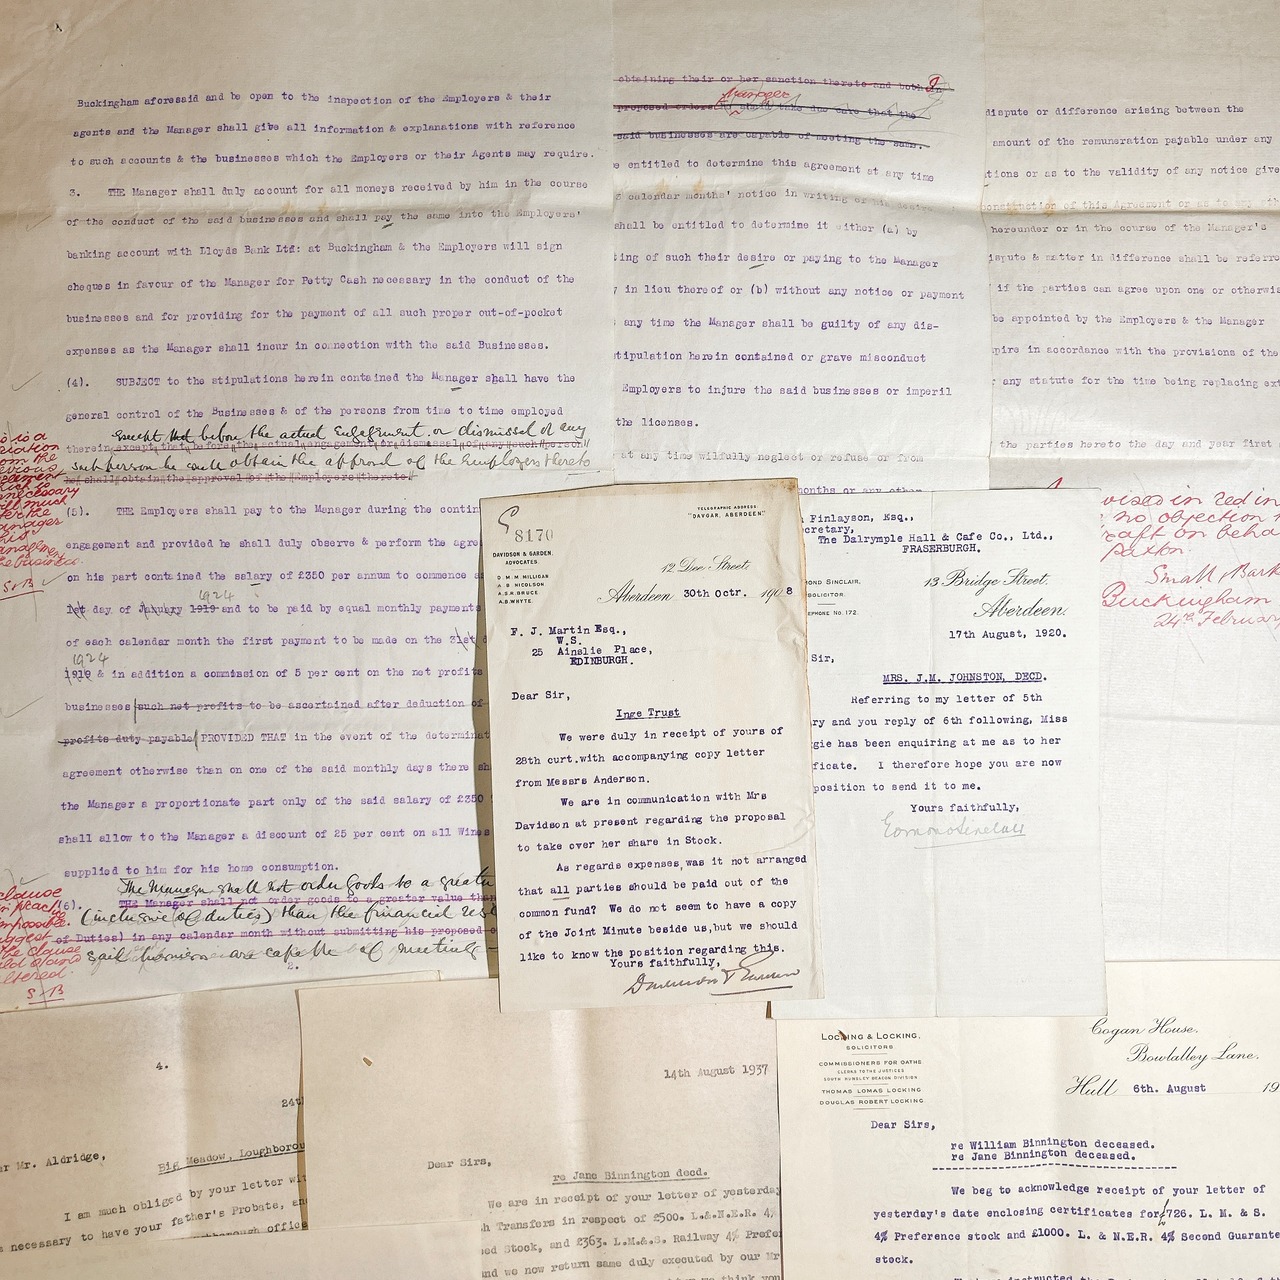 Buckingham aforesaid and be open to the inspection of the Employers & their
agents and the Manager shall give all information & explanations with reference
to such accounts & the businesses which the Employers or their Agents may require.
3. THE Manager shall duly account for all moneys received by him in the course
of the conduct of the said businesses and shall pay the same into the Employers'
banking account with Lloyds Bank Ltd: at Buckingham & the Employers will sign
cheques in favour of the Manager for Petty Cash necessary in the conduct of the
businesses and for providing for the payment of all such proper out-of-pocket
expenses as the Manager shall incur in connection with the said Businesses.
(4). SUBJECT to the stipulations herein contained the Manager shall have the
general control of the Businesses & of the persons from time to time employed
before the actual Engagement or dismissal of any
therein except that before the actual engagement or dismissal of any such person
such person he could obtain the approval of the Employers thereto
he shall obtain the approval of the Employers thereto.
(5). THE Employers shall pay to the Manager during the contin
engagement and provided he shall duly observe & perform the agre
on his part contained the salary of £350 per annum to commence a
1924
1st day of January 1919 and to be paid by equal monthly payments
of each calendar month the first payment to be made on the 31st d
1924
1919 & in addition a commission of 5 per cent on the net profits
businesses such net profits to be ascertained after deduction of
profits duty payable PROVIDED THAT in the event of the determinat
agreement otherwise than on one of the said monthly days there sh
the Manager a proportionate part only of the said salary of £350
shall allow to the Manager a discount of 25 per cent on all Wines
supplied to him for his home consumption.
The Manager shall not order goods to a greater
(6). THE Manager shall not order goods to a greater value than
(inclusive of duties) than the financial
of Duties) in any calendar month without submitting his proposed o
said business are capable of meeting
2.
S-B
clause
impossible
the clause
altered.
S-B
obtaining their or her sanction thereto and both in
Manager
proposed orders to shall take due care that the
said businesses are capable of meeting the same.
e entitled to determine this agreement at any time
calendar months' notice in writing of his desire
shall be entitled to determine it either (a) by
ting of such their desire or paying to the Manager
y in lieu thereof or (b) without any notice or payment
any time the Manager shall be guilty of any dis-
tipulation herein contained or grave misconduct
Employers to injure the said businesses or imperil
the licenses.
at any time wilfully neglect or refuse or from
months or any other
dispute or difference arising between the
amount of the remuneration payable under any
tions or as to the validity of any notice give
construction of this Agreement or as to any
hereunder or in the course of the Manager's
ispute & matter in difference shall be referre
if the parties can agree upon one or otherwis
be appointed by the Employers & the Manager
pire in accordance with the provisions of the
any statute for the time being replacing ext
the parties hereto the day and year first
vised in red in
no objection
raft on beha
Small, Bark
Buckingham
24th February
8170
TELEGRAPHIC ADDRESS
"DAVGAR, ABERDEEN"
DAVIDSON & GARDEN.
ADVOCATES.
D. M. M. MILLIGAN
A. B. NICOLSON
A. S. R. BRUCE.
A. B. WHYTE.
12 Dee Street,
Aberdeen 30th Octr. 1908
F. J. Martin Esq.,
W.S.
25 Ainslie Place,
EDINBURGH.
Dear Sir,
Inge Trust
We were duly in receipt of yours of
28th curt.with accompanying copy letter
from Messrs Anderson.
We are in communication with Mrs
Davidson at present regarding the proposal
to take over her share in Stock.
As regards expenses,was it not arranged
that all parties should be paid out of the
common fund? We do not seem to have a copy
of the Joint Minute beside us,but we should
like to know the position regarding this.
Yours faithfully,
Finlayson, Esq.,
cretary,
The Dalrymple Hall & Cafe Co., Ltd.,
FRASERBURGH.
OND SINCLAIR,
SOLICITOR.
EPHONE No. 172.
13 Bridge Street,
Aberdeen.
17th August, 1920.
Sir,
MRS. J.M. JOHNSTON, DECD.
Referring to my letter of 5th
ry and you reply of 6th following, Miss
gie has been enquiring at me as to her
ficate. I therefore hope you are now
position to send it to me.
Yours faithfully,
Edmond Sinclair
4.
24th
r Mr. Aldridge,
Big Meadow, Loughborou
I am much obliged by your letter wit
necessary to have your father's Probate, and
hborough office
14th August 1937
Dear Sirs,
re Jane Binnington decd.
We are in receipt of your letter of yesterday
h Transfers in respect of £500. L.&.N.E.R. 4%
ed Stock, and £363. L.M.&.S. Railway 4% Prefe
nd we now return same duly executed by our Mr
LOCKING & LOCKING,
SOLICITORS
COMMISSIONERS FOR OATHS
CLERKS TO THE JUSTICES
SOUTH HUNSLEY BEACON DIVISION
THOMAS LOMAS LOCKING
DOUGLAS ROBERT LOCKING.
Cogan House,
Bowlalley Lane,
Hull 6th. August 19
Dear Sirs,
re William Binnington deceased.
re Jane Binnington deceased.
We beg to acknowledge receipt of your letter of
yesterday's date enclosing certificates for £726. L. M. & S.
4% Preference stock and £1000. L. & N.E.R. 4% Second Guarante
stock.